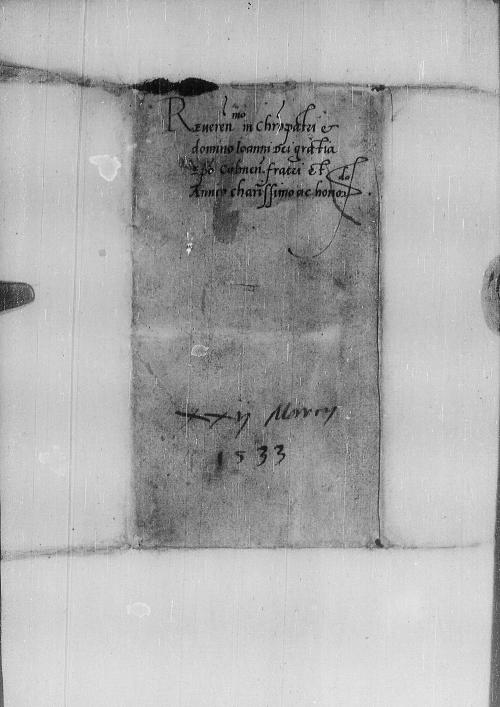 Reveren mo in Chro patri et
domino Ioanni Dei gratia
Epo Culmen. fratri et
Amico charissimo ac honor do.
xxvij Marcij
1533